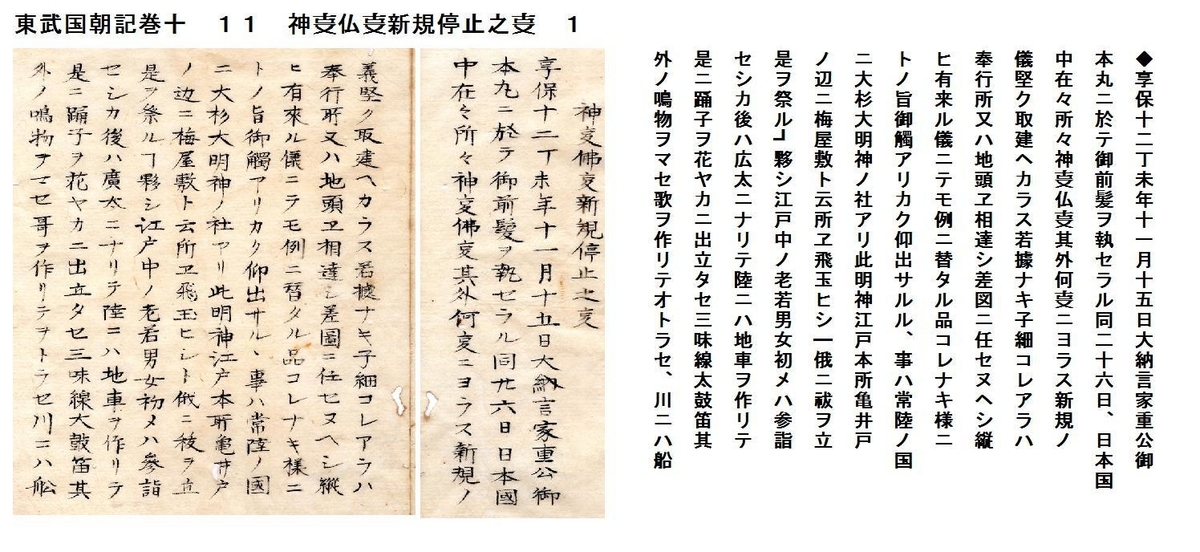 東武国朝記巻十　１１　神叓仏叓新規停止之叓　１
神叓佛叓新規停止之叓
享保十二丁未年十一月十五日大納言家重公御
本丸ニ於テ御前髪ヲ執セラル同廿六日日本國
中在々所々神叓佛叓其外何叓ニヨラス新規ノ
義堅ク取建ヘカラス若據ナキ子細コレアラハ
奉行所又ハ地頭ヱ相達シ差圖ニ任セヌヘシ縦
ヒ有來ル儀ニテモ例ニ替タル品コレナキ様ニ
トノ旨御觸アリカク仰出サルヽ事ハ常陸ノ國
ニ大杉大明神ノ社アリ此明神江戸本所亀井戸
ノ辺ニ梅屋敷ト云所ヱ飛玉ヒシト俄ニ祓ヲ立
是ヲ祭ルヿ夥シ江戸中ノ老若男女初メハ參詣
セシカ後ハ廣大ニナリテ陸ニハ地車ヲ作リテ
是ニ踊子ヲ花ヤカニ出立タセ三味線大鼓笛其
外ノ鳴物ヲマセ哥ヲ作リテヲトラセ川ニハ舩
◆享保十二丁未年十一月十五日大納言家重公御
本丸ニ於テ御前髪ヲ執セラル同二十六日、日本国
中在々所々神叓仏叓其外何叓ニヨラス新規ノ
儀堅ク取建ヘカラス若據ナキ子細コレアラハ
奉行所又ハ地頭ヱ相達シ差図ニ任セヌヘシ縦
ヒ有来ル儀ニテモ例ニ替タル品コレナキ様ニ
トノ旨御觸アリカク仰出サルル、事ハ常陸ノ国
ニ大杉大明神ノ社アリ此明神江戸本所亀井戸
ノ辺ニ梅屋敷ト云所ヱ飛玉ヒシ一俄ニ祓ヲ立
是ヲ祭ル』夥シ江戸中ノ老若男女初メハ参詣
セシカ後ハ広太ニナリテ陸ニハ地車ヲ作リテ
是ニ踊子ヲ花ヤカニ出立タセ三味線太鼓笛其
外ノ鳴物ヲマセ歌ヲ作リテオトラセ、川ニハ船